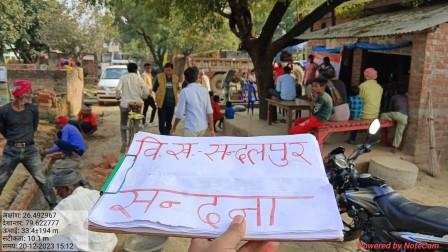 वि. स. सन्दलपुर
सन्दना
अक्षांश: 26.492967
देशान्तर: 79.622777
ऊंचाई: 33.4±194 m
सटीकता: 10.1 m
समय: 20-12-2023 15:12
Powered by NoteCam